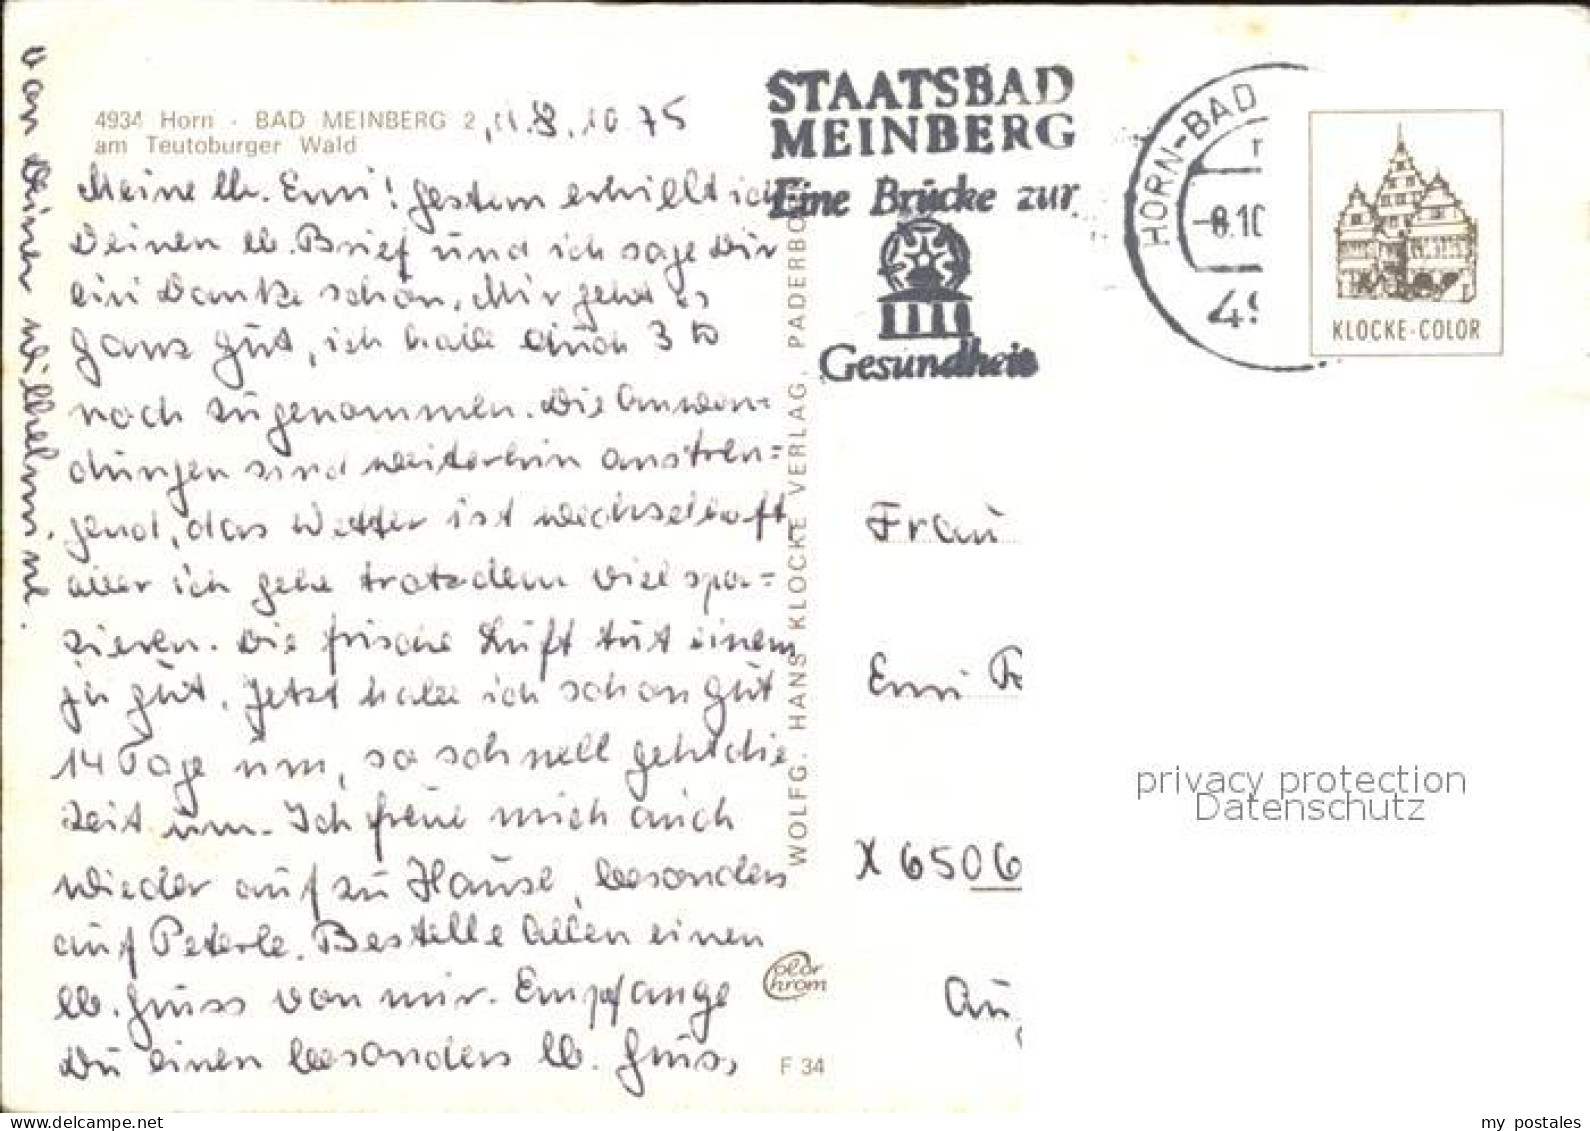 4934 Horn - BAD MEINBERG 2, d. 8.10.75
am Teutoburger Wald
Meine lb. Emi! Gestern erhielt ich
Deinen lb. Brief und ich sage Dir
ein Danke schön. Mir geht es
ganz gut, ich habe auch 3 ℔
noch zugenommen. Die Anwen=
dungen sind weiterhin anstren=
gend, das Wetter ist wechselhaft,
aber ich gehe trotzdem viel spa=
zieren. Die frische Luft tut einem
ja gut. Jetzt habe ich schon gut
14 Tage um, so schnell geht die
Zeit um. Ich freue mich auch
wieder auf zu Hause, besonders
auf Peterle. Bestelle Allen einen
lb. Gruss von mir. Empfange
Du einen besonders lb. Gruss,
von Deiner Wilhelmine.
STAATSBAD
MEINBERG
Eine Brücke zur
Gesundheit
HORN-BAD
-8.10
49
KLOCKE-COLOR
WOLFG. HANS KLOCKE VERLAG, PADERBO
Frau
Emi
X 6506
Au
color
chrom
F 34
privacy protection
Datenschutz
my postales